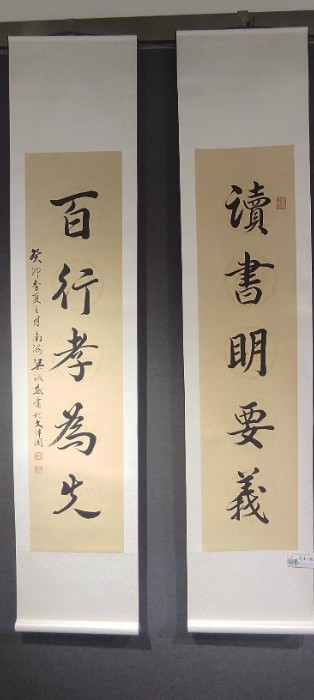 讀書明要義
百行孝為先
癸卯季夏之月南海梁